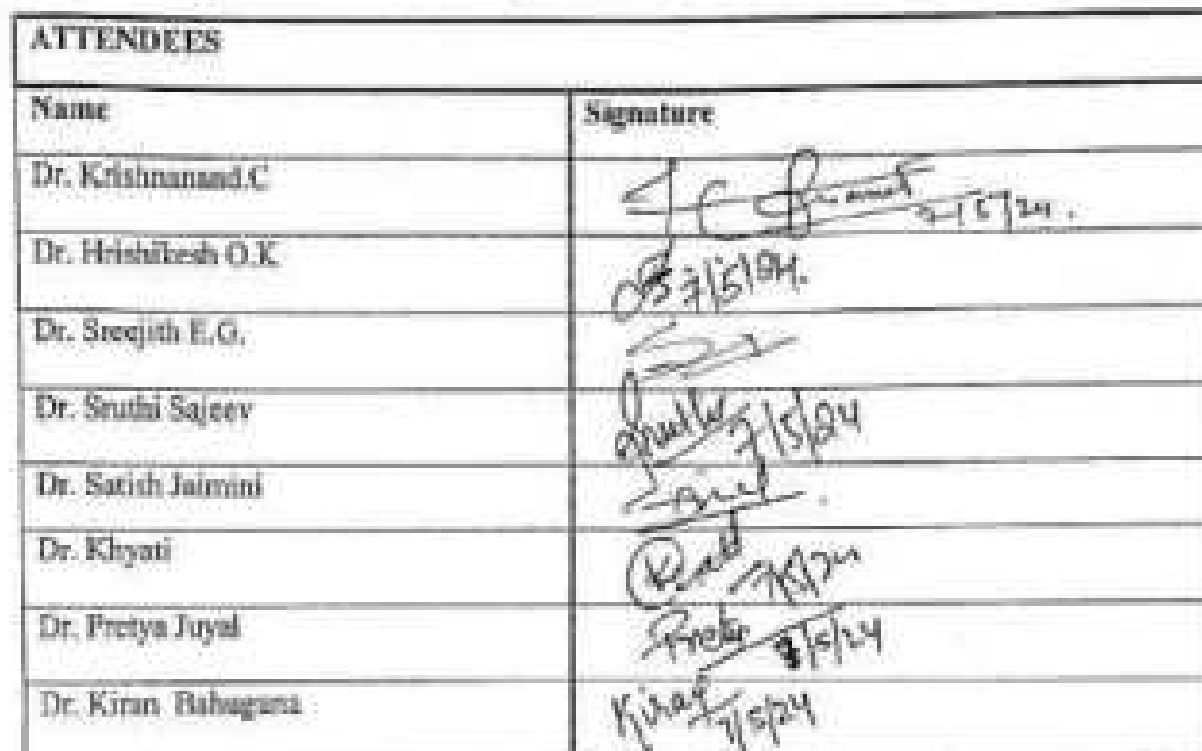 ATTENDEES
Name Signature
Dr. Krishnanand.C 7/5/24.
Dr. Hrishikesh O.K 7/5/24.
Dr. Sreejith E.G.
Dr. Sruthi Sajeev Sruthi 7/5/24
Dr. Satish Jaimini
Dr. Khyati 7/5/24
Dr. Pretya Juyal 7/5/24
Dr. Kiran Bahuguna Kiran 7/5/24